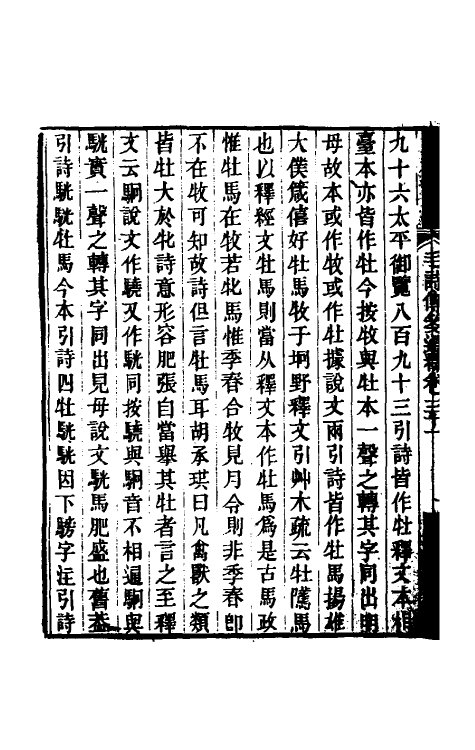 九十六太平御覽八百九十三引詩皆作牡釋文本相
臺本亦皆作牡今按牧與牡本一聲之轉其字同出明
母故本或作牧或作牡據說文兩引詩皆作牡馬揚雄
大僕箴僖好牡馬牧于坰野釋文引艸木疏云牡騭馬
也以釋經文牡馬則當从釋文本作牡馬爲是古馬政
惟牡馬在牧若牝馬惟季春合牧見月令則非季春卽
不在牧可知故詩但言牡馬耳胡承珙曰凡禽獸之類
皆牡大於牝詩意形容肥張自當舉其牡者言之至釋
文云駉說文作驍又作駫同按驍與駉音不相通駉與
駫實一聲之轉其字同出見母說文駫馬肥盛也舊葢
引詩駫駫牡馬今本引詩四牡駫駫因下騯字注引詩
毛詩傳箋通釋卷三十一